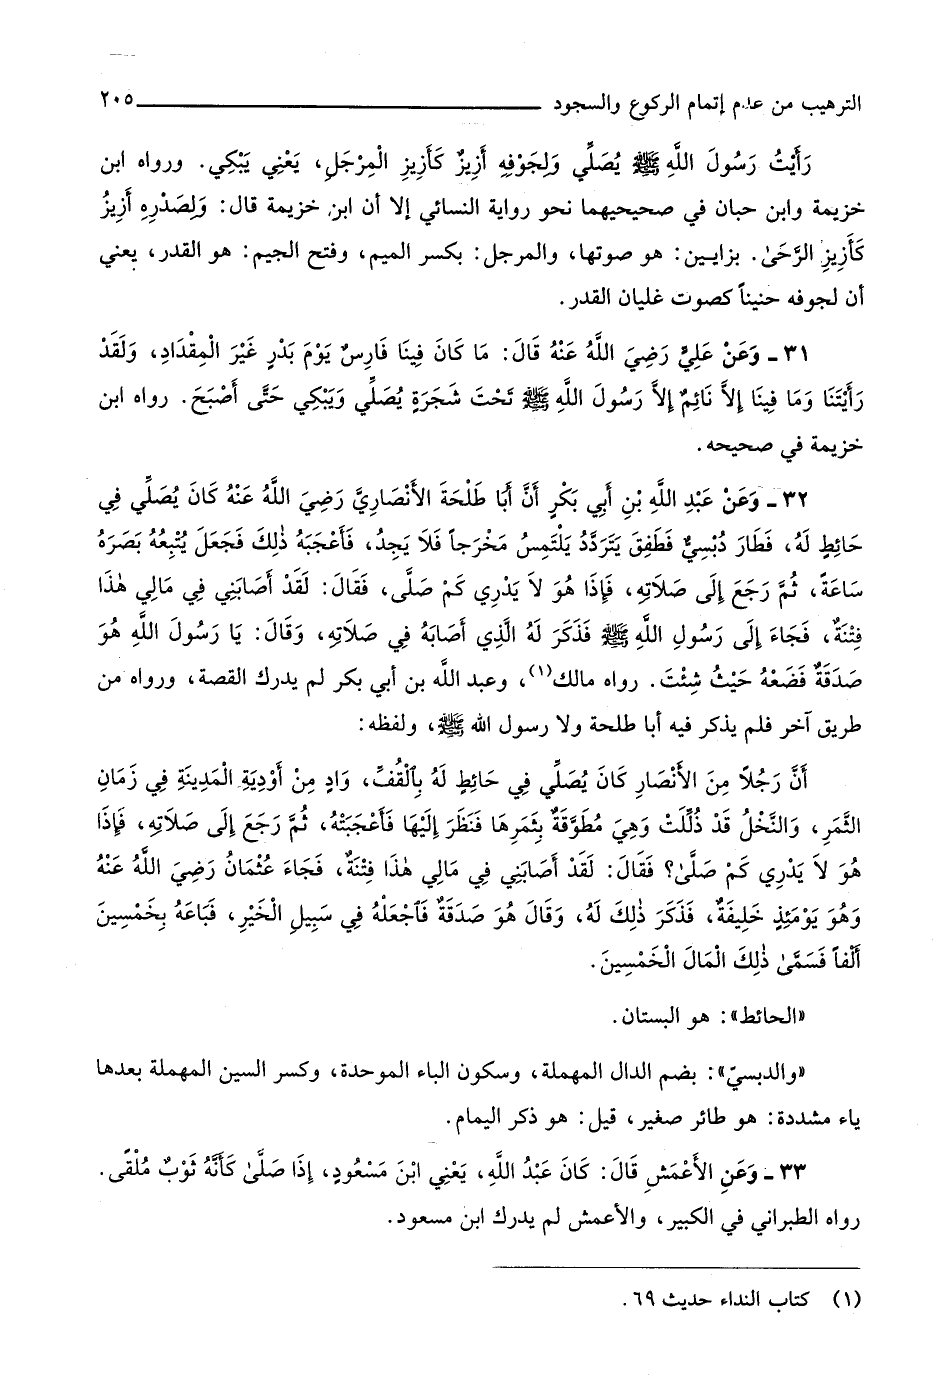 الترهيب من عدم إتمام الركوع والسجود ٢٠٥
رَأَيْتُ رَسُولَ اللَّهِ ﷺ يُصَلِّي وَلِجَوْفِهِ أَزِيزٌ كَأَزِيزِ الْمِرْجَلِ، يَعْنِي يَبْكِي. ورواه ابن
خزيمة وابن حبان في صحيحيهما نحو رواية النسائي إلا أن ابن خزيمة قال: وَلِصَدْرِهِ أَزِيزٌ
كَأَزِيزِ الرَّحَىٰ. بزايـين: هو صوتها، والمرجل: بكسر الميم، وفتح الجيم: هو القدر، يعني
أن لجوفه حنيناً كصوت غليان القدر.
٣١ ـ وَعَنْ عَلِيٍّ رَضِيَ اللَّهُ عَنْهُ قَالَ: مَا كَانَ فِينَا فَارِسٌ يَوْمَ بَدْرٍ غَيْرَ الْمِقْدَادِ، وَلَقَدْ
رَأَيْتَنَا وَمَا فِينَا إِلاَّ نَائِمٌ إِلاَّ رَسُولَ اللَّهِ ﷺ تَحْتَ شَجَرَةٍ يُصَلِّي وَيَبْكِي حَتَّى أَصْبَحَ. رواه ابن
خزيمة في صحيحه.
٣٢ ـ وَعَنْ عَبْدِ اللَّهِ بْنِ أَبِي بَكْرٍ أَنَّ أَبَا طَلْحَةَ الأَنْصَارِيَّ رَضِيَ اللَّهُ عَنْهُ كَانَ يُصَلِّي فِي
حَائِطٍ لَهُ، فَطَارَ دُبْسِيٌّ فَطَفِقَ يَتَرَدَّدُ يَلْتَمِسُ مَخْرَجاً فَلَا يَجِدُ، فَأَعْجَبَهُ ذٰلِكَ فَجَعَلَ يُتْبِعُهُ بَصَرَهُ
سَاعَةً، ثُمَّ رَجَعَ إِلَى صَلَاتِهِ، فَإِذَا هُوَ لاَ يَدْرِي كَمْ صَلَّى، فَقَالَ: لَقَدْ أَصَابَنِي فِي مَالِي هٰذَا
فِتْنَةٌ، فَجَاءَ إِلَى رَسُولِ اللَّهِ ﷺ فَذَكَرَ لَهُ الَّذِي أَصَابَهُ فِي صَلَاتِهِ، وَقَالَ: يَا رَسُولَ اللَّهِ هُوَ
صَدَقَةٌ فَضَعْهُ حَيْثُ شِئْتَ. رواه مالك(١)، وعبد اللَّه بن أبي بكر لم يدرك القصة، ورواه من
طريق آخر فلم يذكر فيه أبا طلحة ولا رسول الله ﷺ، ولفظه:
أَنَّ رَجُلاً مِنَ الأَنْصَارِ كَانَ يُصَلِّي فِي حَائِطٍ لَهُ بِٱلْقُفِّ، وَادٍ مِنْ أَوْدِيَةِ الْمَدِينَةِ فِي زَمَانِ
الثَّمَرِ، وَالنَّخْلُ قَدْ ذُلِّلَتْ وَهِيَ مُطَوَّقَةٌ بِثَمَرِهَا فَنَظَرَ إِلَيْهَا فَأَعْجَبَتْهُ، ثُمَّ رَجَعَ إِلَى صَلَاتِهِ، فَإِذَا
هُوَ لاَ يَدْرِي كَمْ صَلَّىٰ؟ فَقَالَ: لَقَدْ أَصَابَنِي فِي مَالِي هٰذَا فِتْنَةٌ، فَجَاءَ عُثْمَانُ رَضِيَ اللَّهُ عَنْهُ
وَهُوَ يَوْمَئِذٍ خَلِيفَةٌ، فَذَكَرَ ذٰلِكَ لَهُ، وَقَالَ هُوَ صَدَقَةٌ فَٱجْعَلْهُ فِي سَبِيلِ الْخَيْرِ، فَبَاعَهُ بِخَمْسِينَ
أَلْفاً فَسَمَّىٰ ذٰلِكَ الْمَالَ الْخَمْسِينَ.
«الحائط»: هو البستان.
«والدبسيّ»: بضم الدال المهملة، وسكون الباء الموحدة، وكسر السين المهملة بعدها
ياء مشددة: هو طائر صغير، قيل: هو ذكر اليمام.
٣٣ ـ وَعَنِ الأَعْمَشِ قَالَ: كَانَ عَبْدُ اللَّهِ، يَعْنِي ابْنَ مَسْعُودٍ، إِذَا صَلَّىٰ كَأَنَّهُ ثَوْبٌ مُلْقًى.
رواه الطبراني في الكبير، والأعمش لم يدرك ابن مسعود.
(١) كتاب النداء حديث ٦٩.